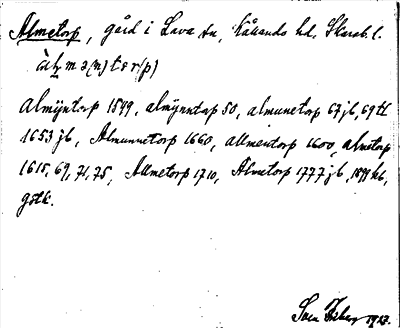 Almetorp, gård i Lava sn, Kållands hd, Skarab. l.
àlmə(n)tɵr(p)
Almÿntorp 1549, almÿnntap 50, almunetorp 67 jb, 69 tl
1653 jb, Almunnetorp 1660, allmentorp 1600, almetorp
1615, 69, 71, 75, Allmetorp 1710, Almetorp 1777 jb, 1877 kb,
gstk.
Sven 1923.